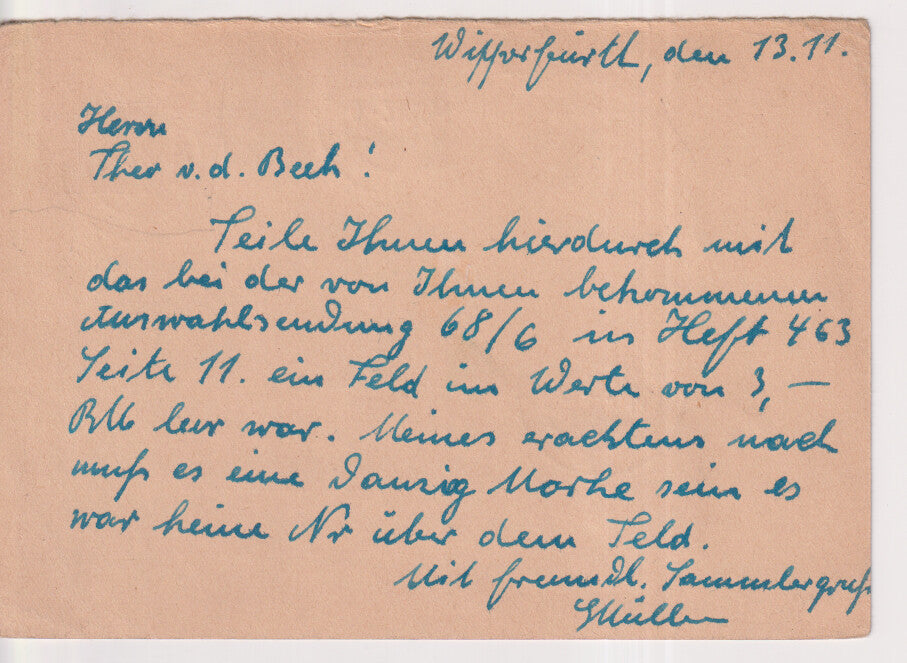 Wipperfürth, den 13.11.
Herrn
Theo v. d. Beek!
Teile Ihnen hierdurch mit
das bei der von Ihnen bekommenen
Auswahlsendung 68/6 in Heft 463
Seite 11. ein Feld im Werte von 3,—
RM leer war. Meines erachtens nach
muß es eine Danzig Marke sein es
war keine Nr über dem Feld.
Mit freundl. Sammlergruß
Müller